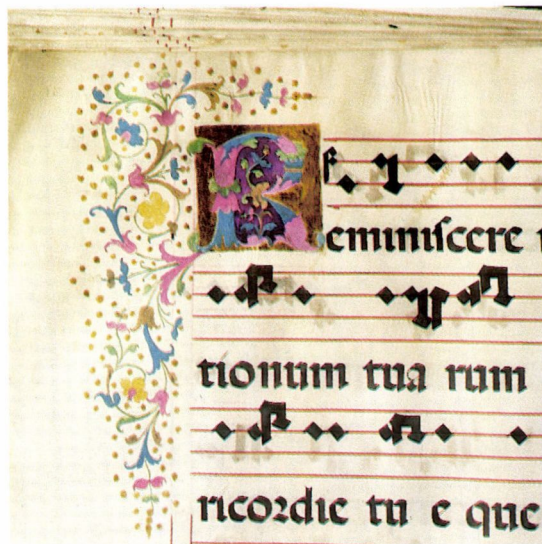 Reminiscere
tionum tua rum
ricordie tu e que